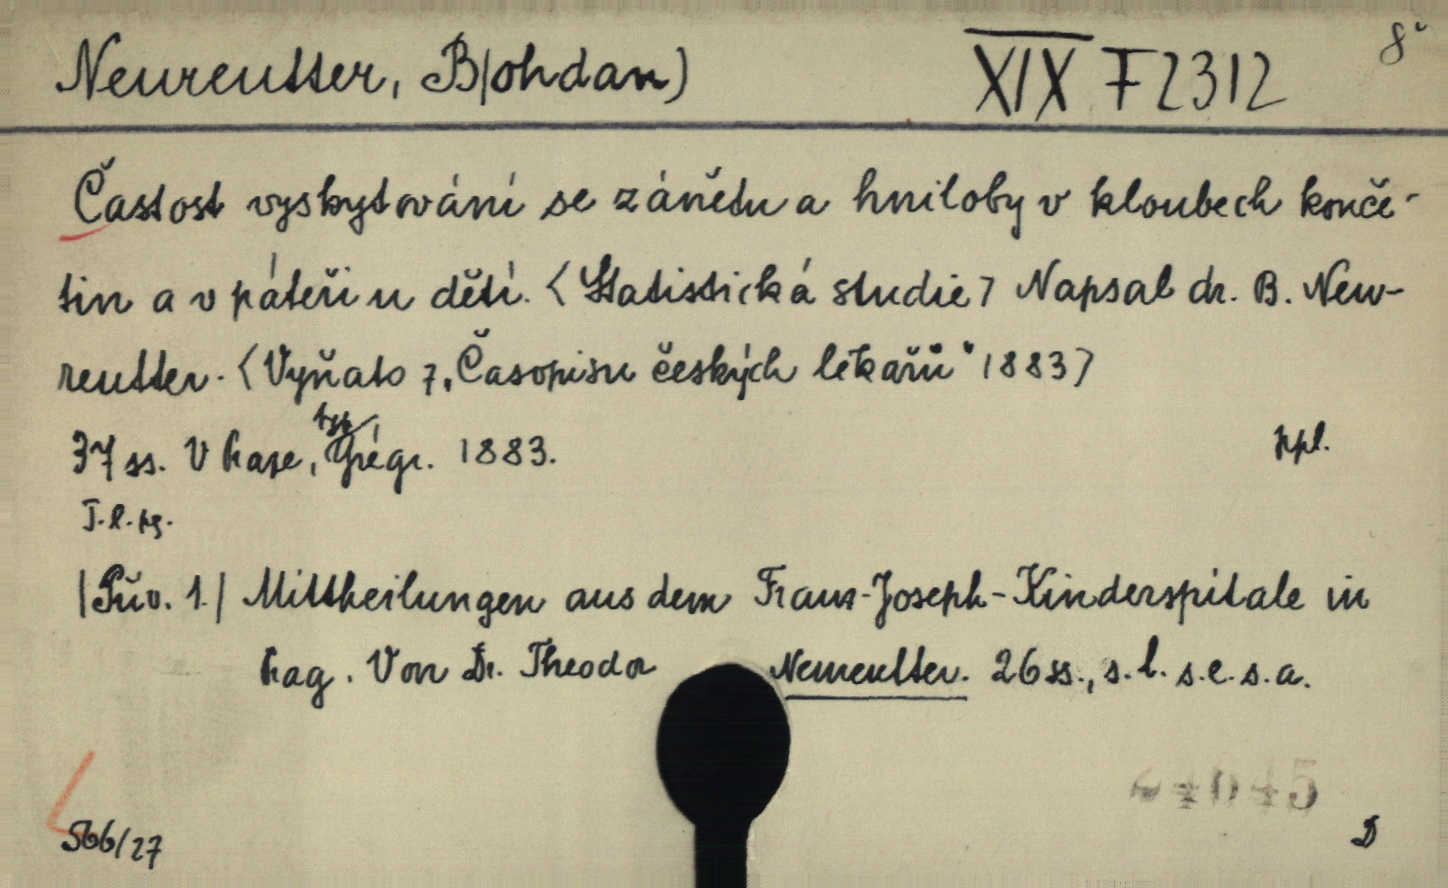 Neureutter, B(ohdan) XIX F 2312 8°
Častost vyskytování se zánětu a hniloby v kloubech konče-
tin a v páteři u dětí. <Statistická studie> Napsal dr. B. Neu-
reutter. <Vyňato z „Časopisu českých lékařů“ 1883>
37 ss. V Praze, typ. Grégr. 1883. ppl.
T. l. pg.
|Přív. 1.| Mittheilungen aus dem Franz-Joseph-Kinderspitale in
Prag. Von Dr. Theodor Neureutter. 26 ss., s. l. s. e. s. a.
566/27 D